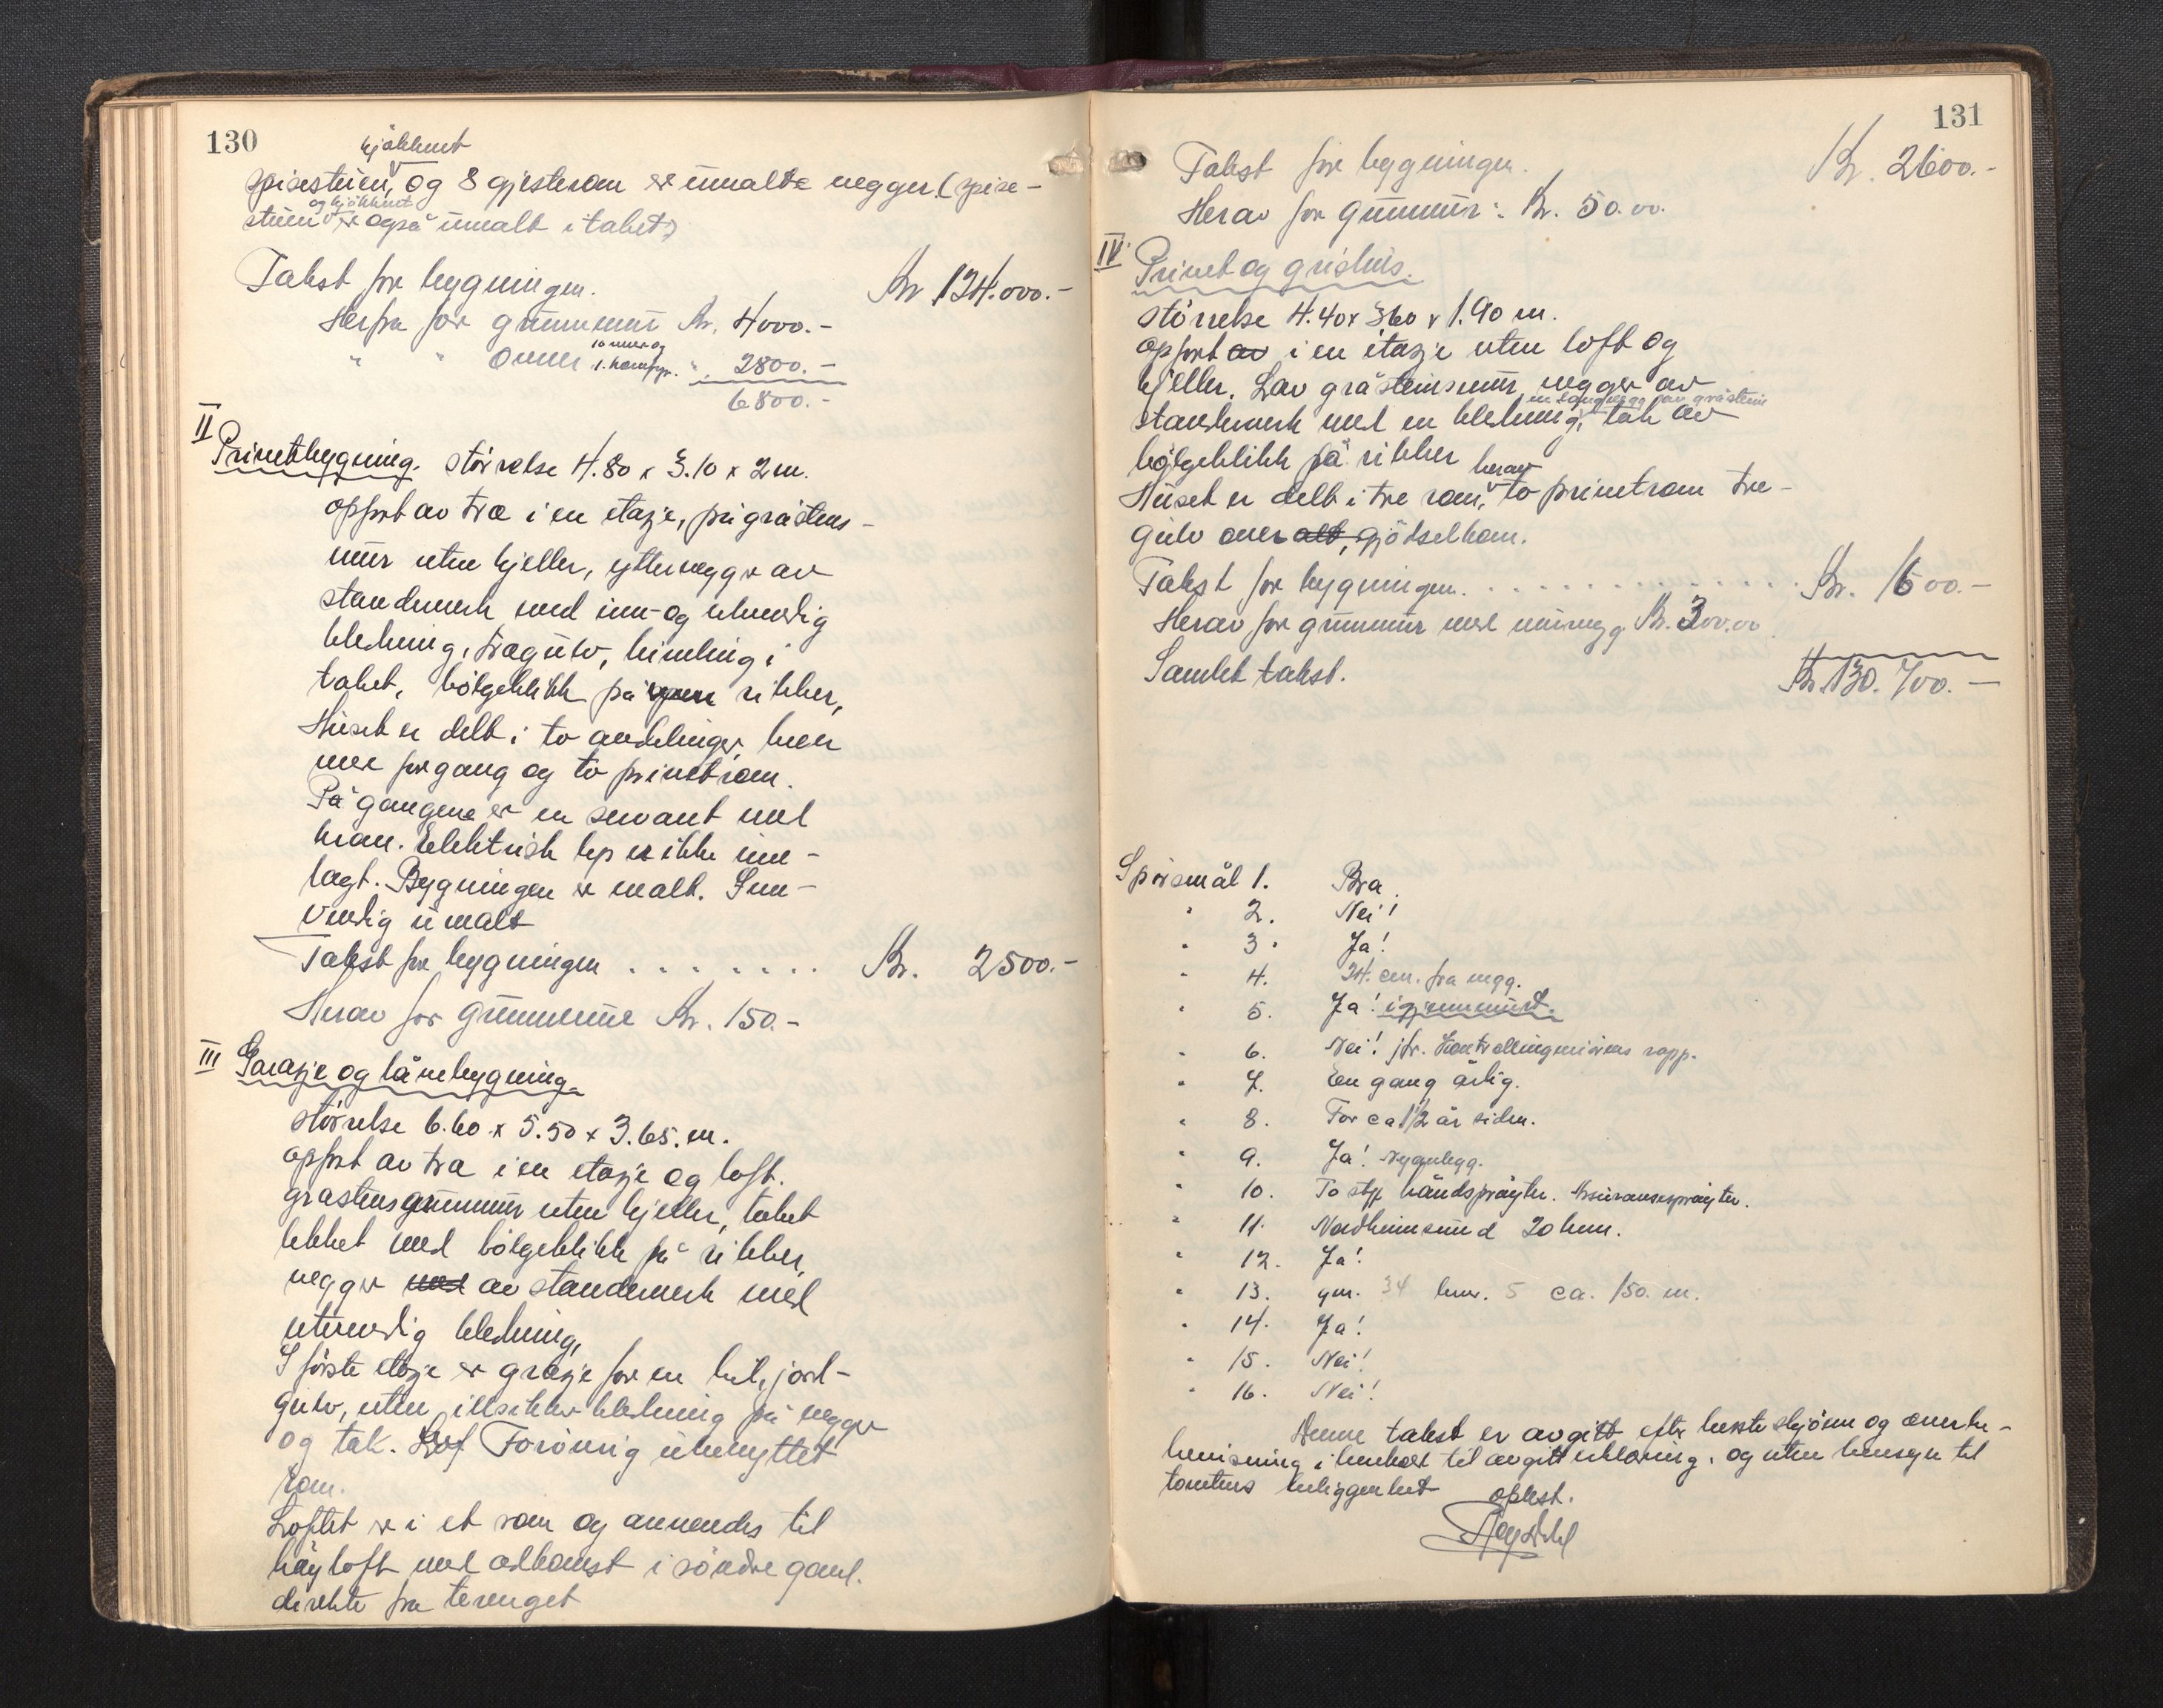 130
kjøkkenet
spisestuen, og 8 gjesterom er umalte vegger. (spise-
og kjøkkenet
stuen er også umalt i taket)
Takst for bygningen. Kr 124.000.-
Herfra for grunnmur Kr. 4000.-
" " Ovner 10 ovner og 1. komfyr. " 2800.-
6800.-
II
Privetbygning. størrelse 4.80 x 3.10 x 2 m.
opført av tre i en etasje, på gråstens-
mur uten kjeller, yttervegger av
standverk med inn- og utvendig
kledning, tregulv, himling i
taket, bølgeblikk på rikker,
Huset er delt i to avdelinger, hver
med forgang og to privetrom.
På gangene er en servant med
kran. Elektrisk lys er ikke inn-
lagt. Bygningen er malt. Inn-
vendig umalt
Takst for bygningen ....... Kr. 2500.-
Herav for grunnmur Kr. 150.-
III Garasje og låvebygning.
størrelse 6.60 x 5.50 x 3.65. m.
opført av tre i en etasje og loft.
gråstens grunnmur uten kjeller, taket
tekket med bølgeblikk på rikker,
vegger med av standverk med
utvendig kledning,
I første etasje er grasje for en bil, jord-
gulv, uten illsikker kledning på vegger
og tak. Lof Forøvrig ubenyttet
rom.
Loftet er i et rom og anvendes til
høyloft med adkomst i søndre gavl.
direkte fra terenget
131
Takst for bygningen. Kr. 2600.-
Herav for grunnmur: Kr. 50.00.
IV
Privet og grishus.
størrelse 4.40 x 3.60 x 1.90 m.
opført av i en etasje uten loft og
kjeller. Lav gråsteinsmur, vegger av
en langvegg av gråstein
standverk med en kledning, tak av
bølgeblikk på rikker
herav
Huset er delt i tre rom, to privetrom tre-
gulv over alt, gjødselkom.
Takst for bygningen. ............. Kr. 1600.-
Herav for grunnmur med murvegg Kr. 300.00
Samlet takst. Kr. 130.700.-
Spørsmål 1. Bra.
" 2. Nei!
" 3. Ja!
" 4. 24. cm. fra vegg.
" 5. Ja! i grunnmuret.
" 6. Nei! jfr. Kontrollingeniørens rapp.
" 7. En gang årlig.
" 8. For ca 1 1/2 år siden.
" 9. Ja! Nyanlegg.
" 10. To stk håndsprøyter. Assuransesprøyter.
" 11. Nordheimsund 20 km.
" 12. Ja!
" 13. gnr. 34 bnr. 5 ca. 150. m.
" 14. Ja!
" 15. Nei!
" 16. Nei!
Denne takst er avgitt efter beste skjønn og overbe-
visning i henhold til avgitt erklæring, og uten hensyn til
tomtens beliggenhet oplest.